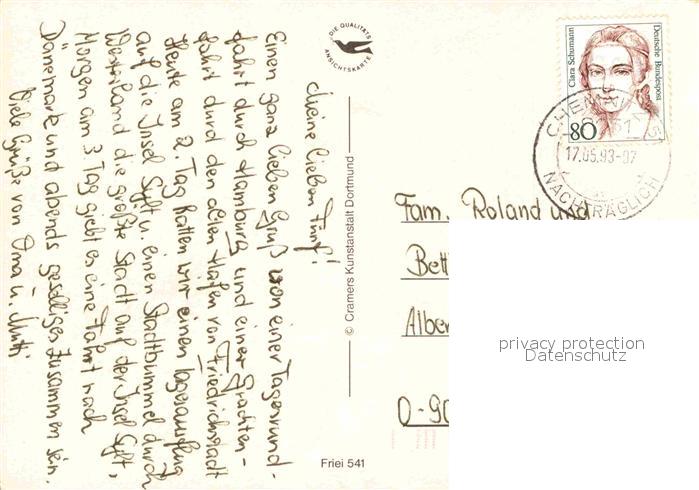 Meine lieben Fünf!
Einen ganz lieben Gruß von einer Tagesrund-
fahrt durch Hamburg und einer Grachten-
fahrt durch den alten Hafen von Friedrichstadt
Heute am 2. Tag hatten wir einen Tagesausflug
auf die Insel Sylt u. einen Stadtbummel durch
Westerland die größte Stadt auf der Insel Sylt,
Morgen am 3 Tag giebt es eine Fahrt nach
Dänemark und abends geselliges Zusammen sein.
Viele Grüße von Oma u. Mutti
DIE QUALITÄTS
ANSICHTSKARTE
© Cramers Kunstanstalt Dortmund
Friei 541
Clara Schumann
Deutsche Bundespost
80
CHEMNITZ
17.05.93-07
NACHTRÄGLICH
Fam. Roland und
Bett
Alber
O-90
privacy protection
Datenschutz